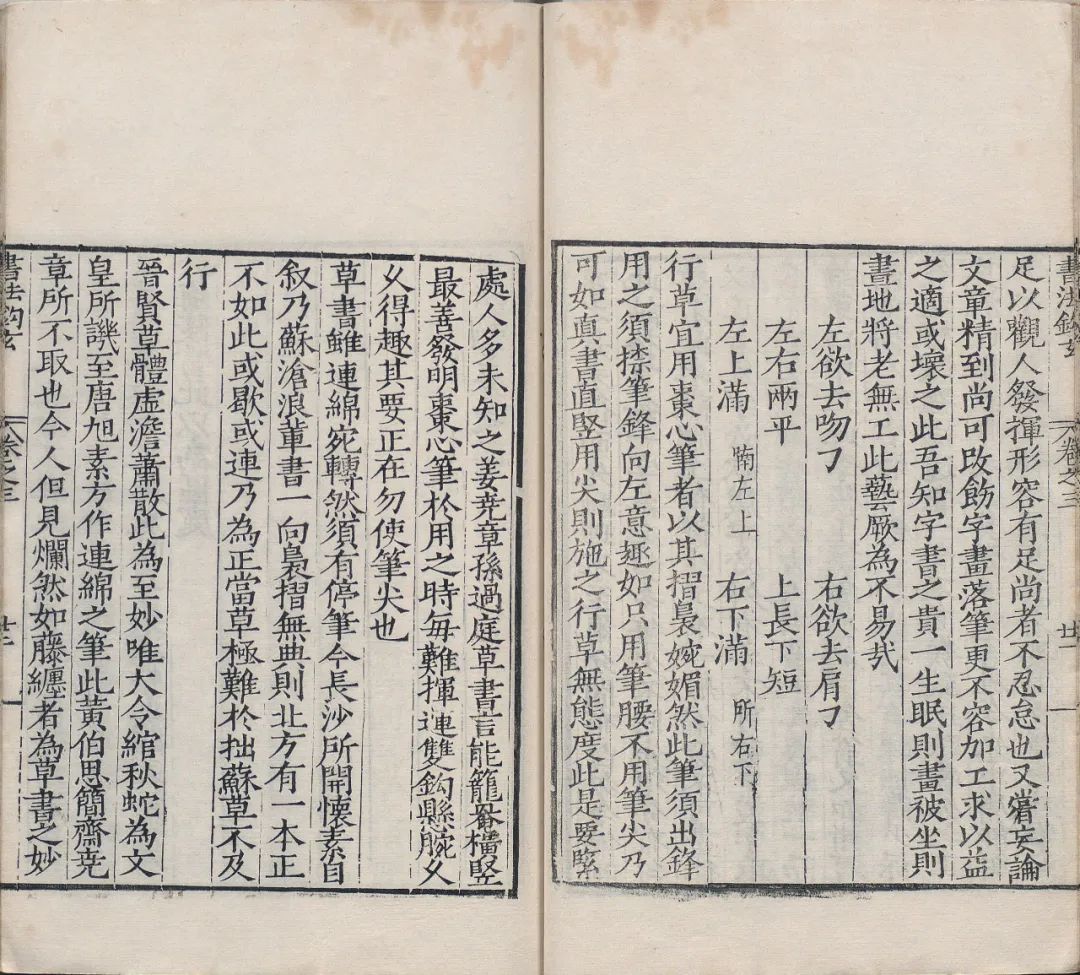 書法鈎玄
卷之三
廿一
足以觀人發揮形容有足尚者不忍怠也又嘗妄論
文章精到尚可改飭字畫落筆更不容加工求以益
之適或壞之此吾知字書之貴一生眠則畫被坐則
畫地將老無工此藝厥爲不易哉
左欲去吻刁 右欲去肩刁
左右兩平 上長下短
左上滿 左上 右下滿 右下
行草宜用棗心筆者以其摺裊婉媚然此筆須出鋒
用之須捺筆鋒向左意趣如只用筆腰不用筆尖乃
可如真書直竪用尖則施之行草無態度此是要緊
處人多未知之姜堯章孫過庭草書言能籠畨橫竪
最善發明棗心筆於用之時每難揮運雙鈎懸腕乆
乆得趣其要正在勿使筆尖也
草書雖連綿宛轉然須有停筆今長沙所開懷素自
叙乃蘇滄浪軰書一向裊摺無典則北方有一本正
不如此或歇或連乃為正當草極難於拙蘇草不及
行
晉賢草體虛澹蕭散此為至妙唯大令綰秋蛇為文
皇所譏至唐旭素方作連綿之筆此黃伯思簡齋堯
章所不取也今人但見爛然如藤纏者為草書之妙
書法鈎玄
卷之三
廿一